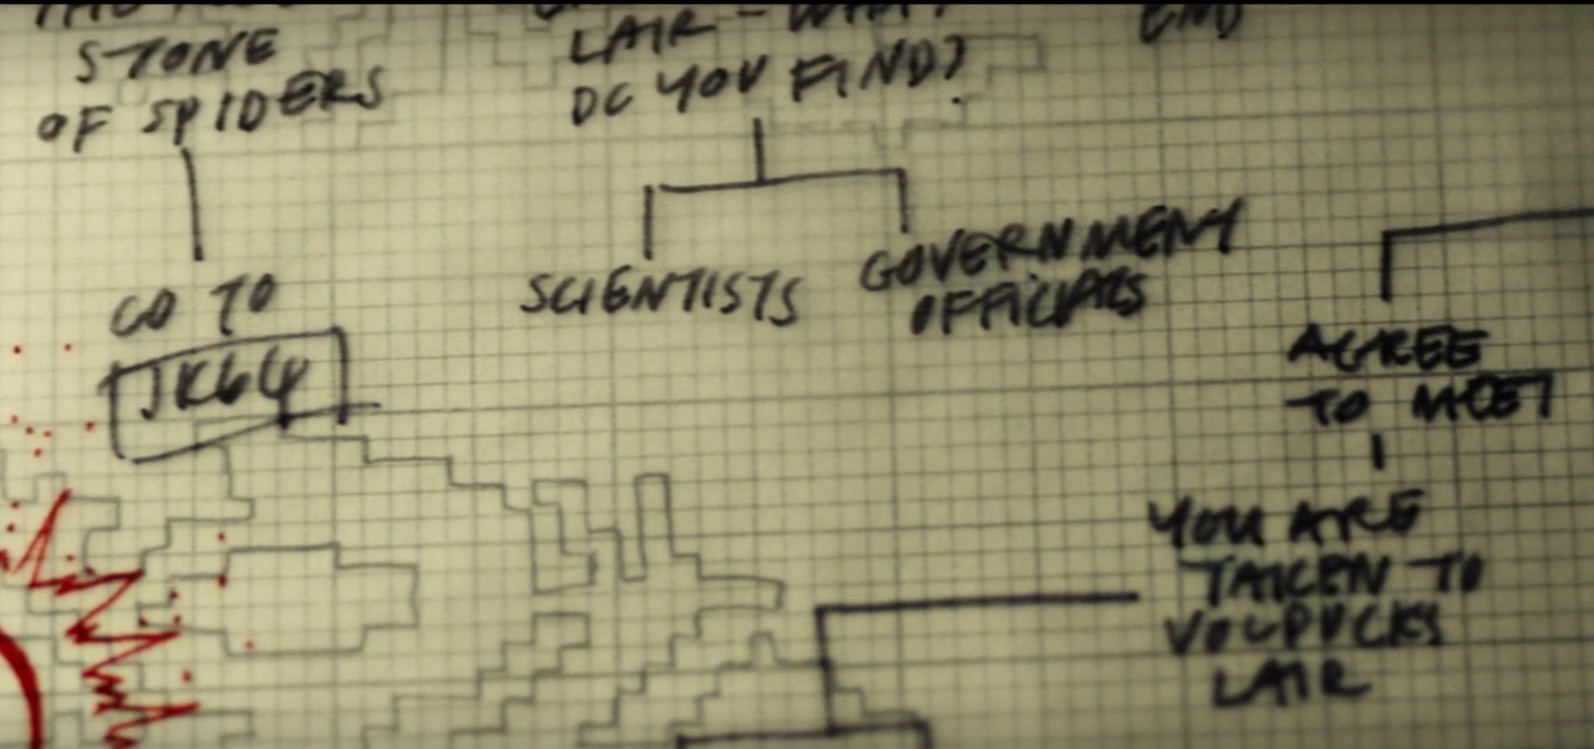 STONE
OF SPIDERS
GO TO
JK64
LAIR - WHAT
DO YOU FIND?
SCIENTISTS
GOVERNMENT
OFFICIALS
END
AGREE
TO MEET
YOU ARE
TAKEN TO
VOLPUCKS
LAIR